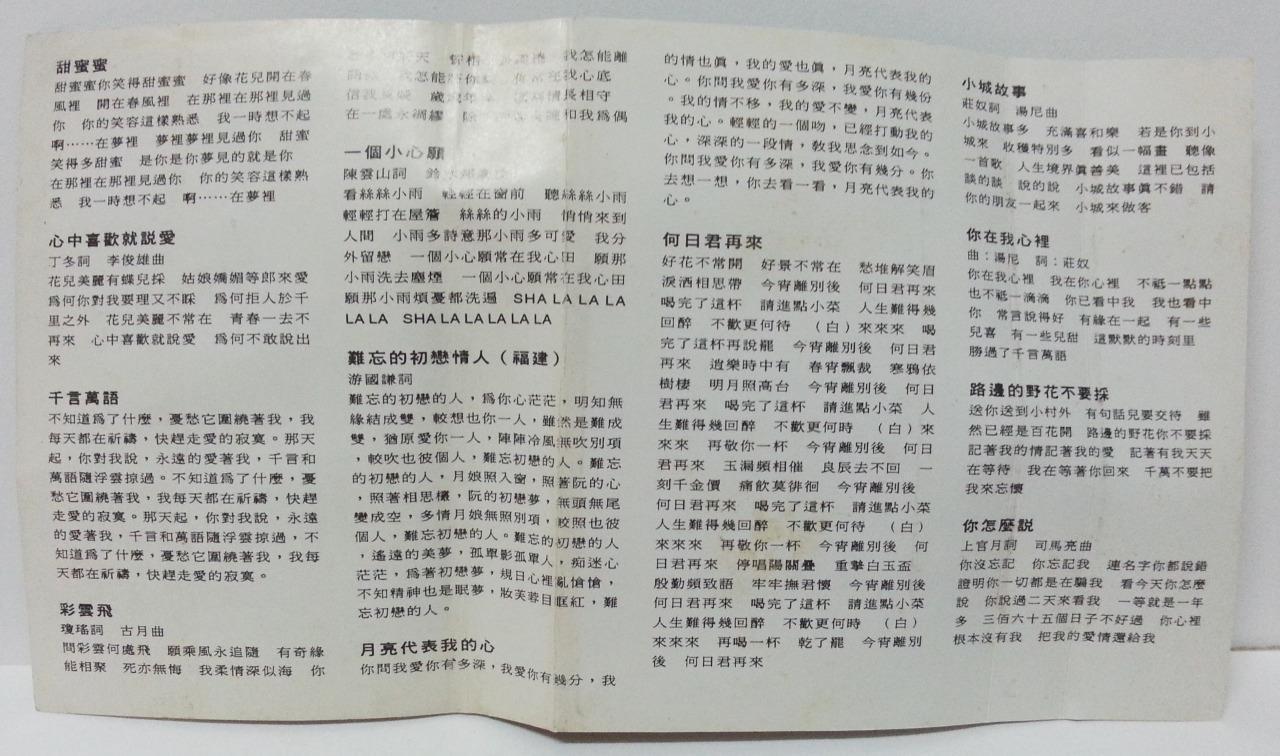 甜蜜蜜
甜蜜蜜你笑得甜蜜蜜　好像花兒開在春
風裡　開在春風裡　在那裡在那裡見過
你　你的笑容這樣熟悉　我一時想不起
啊……在夢裡　夢裡夢裡見過你　甜蜜
笑得多甜蜜　是你是你夢見的就是你
在那裡在那裡見過你　你的笑容這樣熟
悉　我一時想不起　啊……在夢裡
心中喜歡就説愛
丁冬詞　李俊雄曲
花兒美麗有蝶兒採　姑娘嬌媚等郎來愛
爲何你對我要理又不睬　爲何拒人於千
里之外　花兒美麗不常在　青春一去不
再來　心中喜歡就説愛　爲何不敢說出
來
千言萬語
不知道爲了什麼，憂愁它圍繞著我，我
每天都在祈禱，快趕走愛的寂寞。那天
起，你對我說，永遠的愛著我，千言和
萬語隨浮雲掠過。不知道爲了什麼，憂
愁它圍繞著我，我每天都在祈禱，快趕
走愛的寂寞。那天起，你對我說，永遠
的愛著我，千言和萬語隨浮雲掠過，不
知道爲了什麼，憂愁它圍繞著我，我每
天都在祈禱，快趕走愛的寂寞。
彩雲飛
瓊瑤詞　古月曲
問彩雲何處飛　願乘風永追隨　有奇緣
能相聚　死亦無悔　我柔情深似海　你
天　我怎能離
我怎能　我心底
信我　長相守
在一處永綢繆　和我爲偶
一個小心願
陳雲山詞　鈴木
看絲絲小雨　輕輕在窗前　聽絲絲小雨
輕輕打在屋簷　絲絲的小雨　悄悄來到
人間　小雨多詩意那小雨多可愛　我分
外留戀　一個小心願常在我心田　願那
小雨洗去塵煙　一個小心願常在我心田
願那小雨煩憂都洗遍　SHA LA LA LA
LA LA　SHA LA LA LA LA LA
難忘的初戀情人（福建）
游國謙詞
難忘的初戀的人，爲你心茫茫，明知無
緣結成雙，較想也你一人，雖然是難成
雙，猶原愛你一人，陣陣冷風無吹別項
，較吹也彼個人，難忘初戀的人。難忘
的初戀的人，月娘照入窗，照著阮的心
，照著相思欉，阮的初戀夢，無頭無尾
變成空，多情月娘無照別項，較照也彼
個人，難忘初戀的人。難忘的初戀的人
，遙遠的美夢，孤單影孤單人，痴迷心
茫茫，爲著初戀夢，規日心裡亂愴愴，
不知精神也是眠夢，妝芙蓉目眶紅，難
忘初戀的人。
月亮代表我的心
你問我愛你有多深，我愛你有幾分，我
的情也眞，我的愛也眞，月亮代表我的
心。你問我愛你有多深，我愛你有幾份
。我的情不移，我的愛不變，月亮代表
我的心。輕輕的一個吻，已經打動我的
心，深深的一段情，敎我思念到如今。
你問我愛你有多深，我愛你有幾分。你
去想一想，你去看一看，月亮代表我的
心。
何日君再來
好花不常開　好景不常在　愁堆解笑眉
淚洒相思帶　今宵離別後　何日君再來
喝完了這杯　請進點小菜　人生難得幾
回醉　不歡更何待　（白）來來來　喝
完了這杯再說罷　今宵離別後　何日君
再來　逍樂時中有　春宵飄裁　寒鴉依
樹棲　明月照高台　今宵離別後　何日
君再來　喝完了這杯　請進點小菜　人
生難得幾回醉　不歡更何時　（白）來
來來　再敬你一杯　今宵離別後　何日
君再來　玉漏頻相催　良辰去不回　一
刻千金價　痛飲莫徘徊　今宵離別後
何日君再來　喝完了這杯　請進點小菜
人生難得幾回醉　不歡更何待　（白）
來來來　再敬你一杯　今宵離別後　何
日君再來　停唱陽關疊　重擎白玉盃
殷勤頻致語　牢牢撫君懷　今宵離別後
何日君再來　喝完了這杯　請進點小菜
人生難得幾回醉　不歡更何時　（白）
來來來　再喝一杯　乾了罷　今宵離別
後　何日君再來
小城故事
莊奴詞　湯尼曲
小城故事多　充滿喜和樂　若是你到小
城來　收穫特別多　看似一幅畫　聽像
一首歌　人生境界眞善美　這裡已包括
談的談　說的說　小城故事眞不錯　請
你的朋友一起來　小城來做客
你在我心裡
曲：湯尼　詞：莊奴
你在我心裡　我在你心裡　不衹一點點
也不衹一滴滴　你已看中我　我也看中
你　常言說得好　有緣在一起　有一些
兒喜　有一些兒甜　這默默的時刻里
勝過了千言萬語
路邊的野花不要採
送你送到小村外　有句話兒要交待　雖
然已經是百花開　路邊的野花你不要採
記著我的情記著我的愛　記著有我天天
在等待　我在等著你回來　千萬不要把
我來忘懷
你怎麼説
上官月詞　司馬亮曲
你沒忘記　你忘記我　連名字你都說錯
證明你一切都是在騙我　看今天你怎麼
說　你說過二天來看我　一等就是一年
多　三佰六十五個日子不好過　你心裡
根本沒有我　把我的愛情還給我